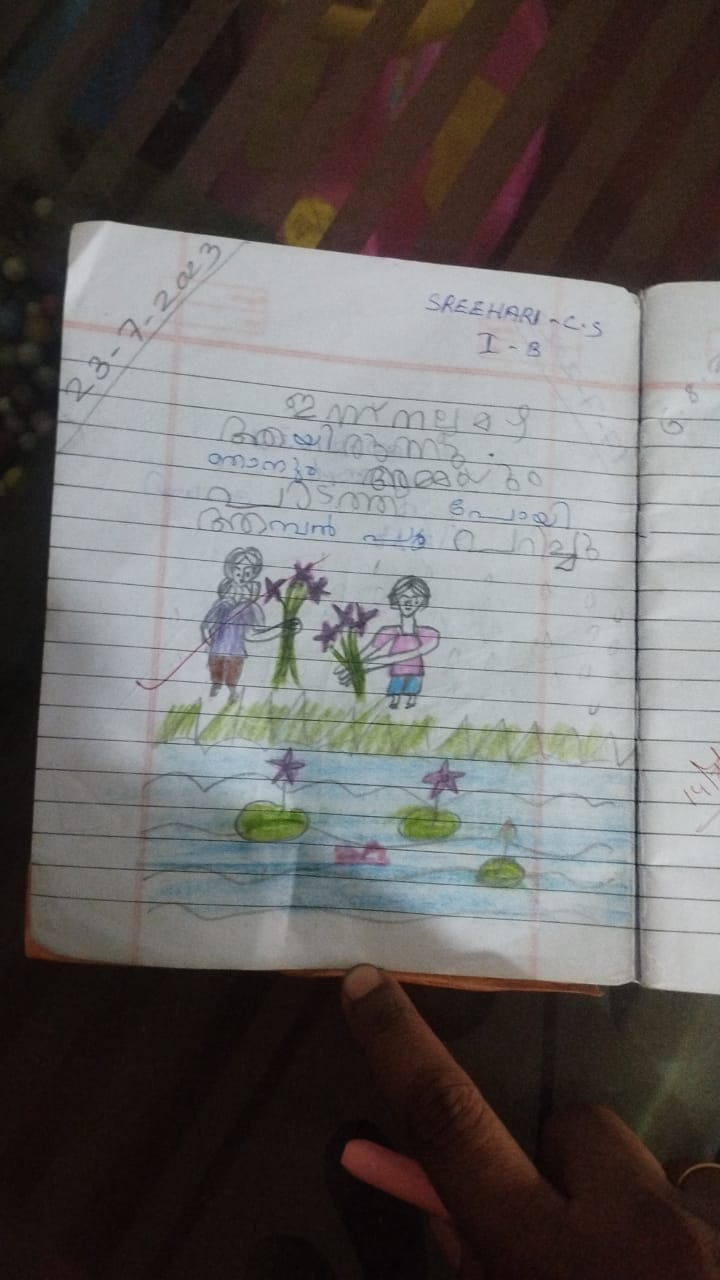 23-7-2023
SREEHARI-C.S
I-B
ഇന്ന് നല്ല മഴ
ആയിരുന്നു.
ഞാനും അമ്മയും
പാടത്ത് പോയി
ആമ്പൽ പൂ പറിച്ചു